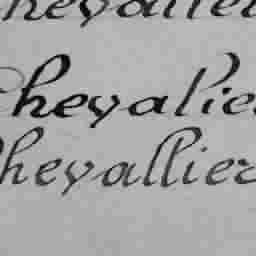 hevallier
Chevalier
Chevallier